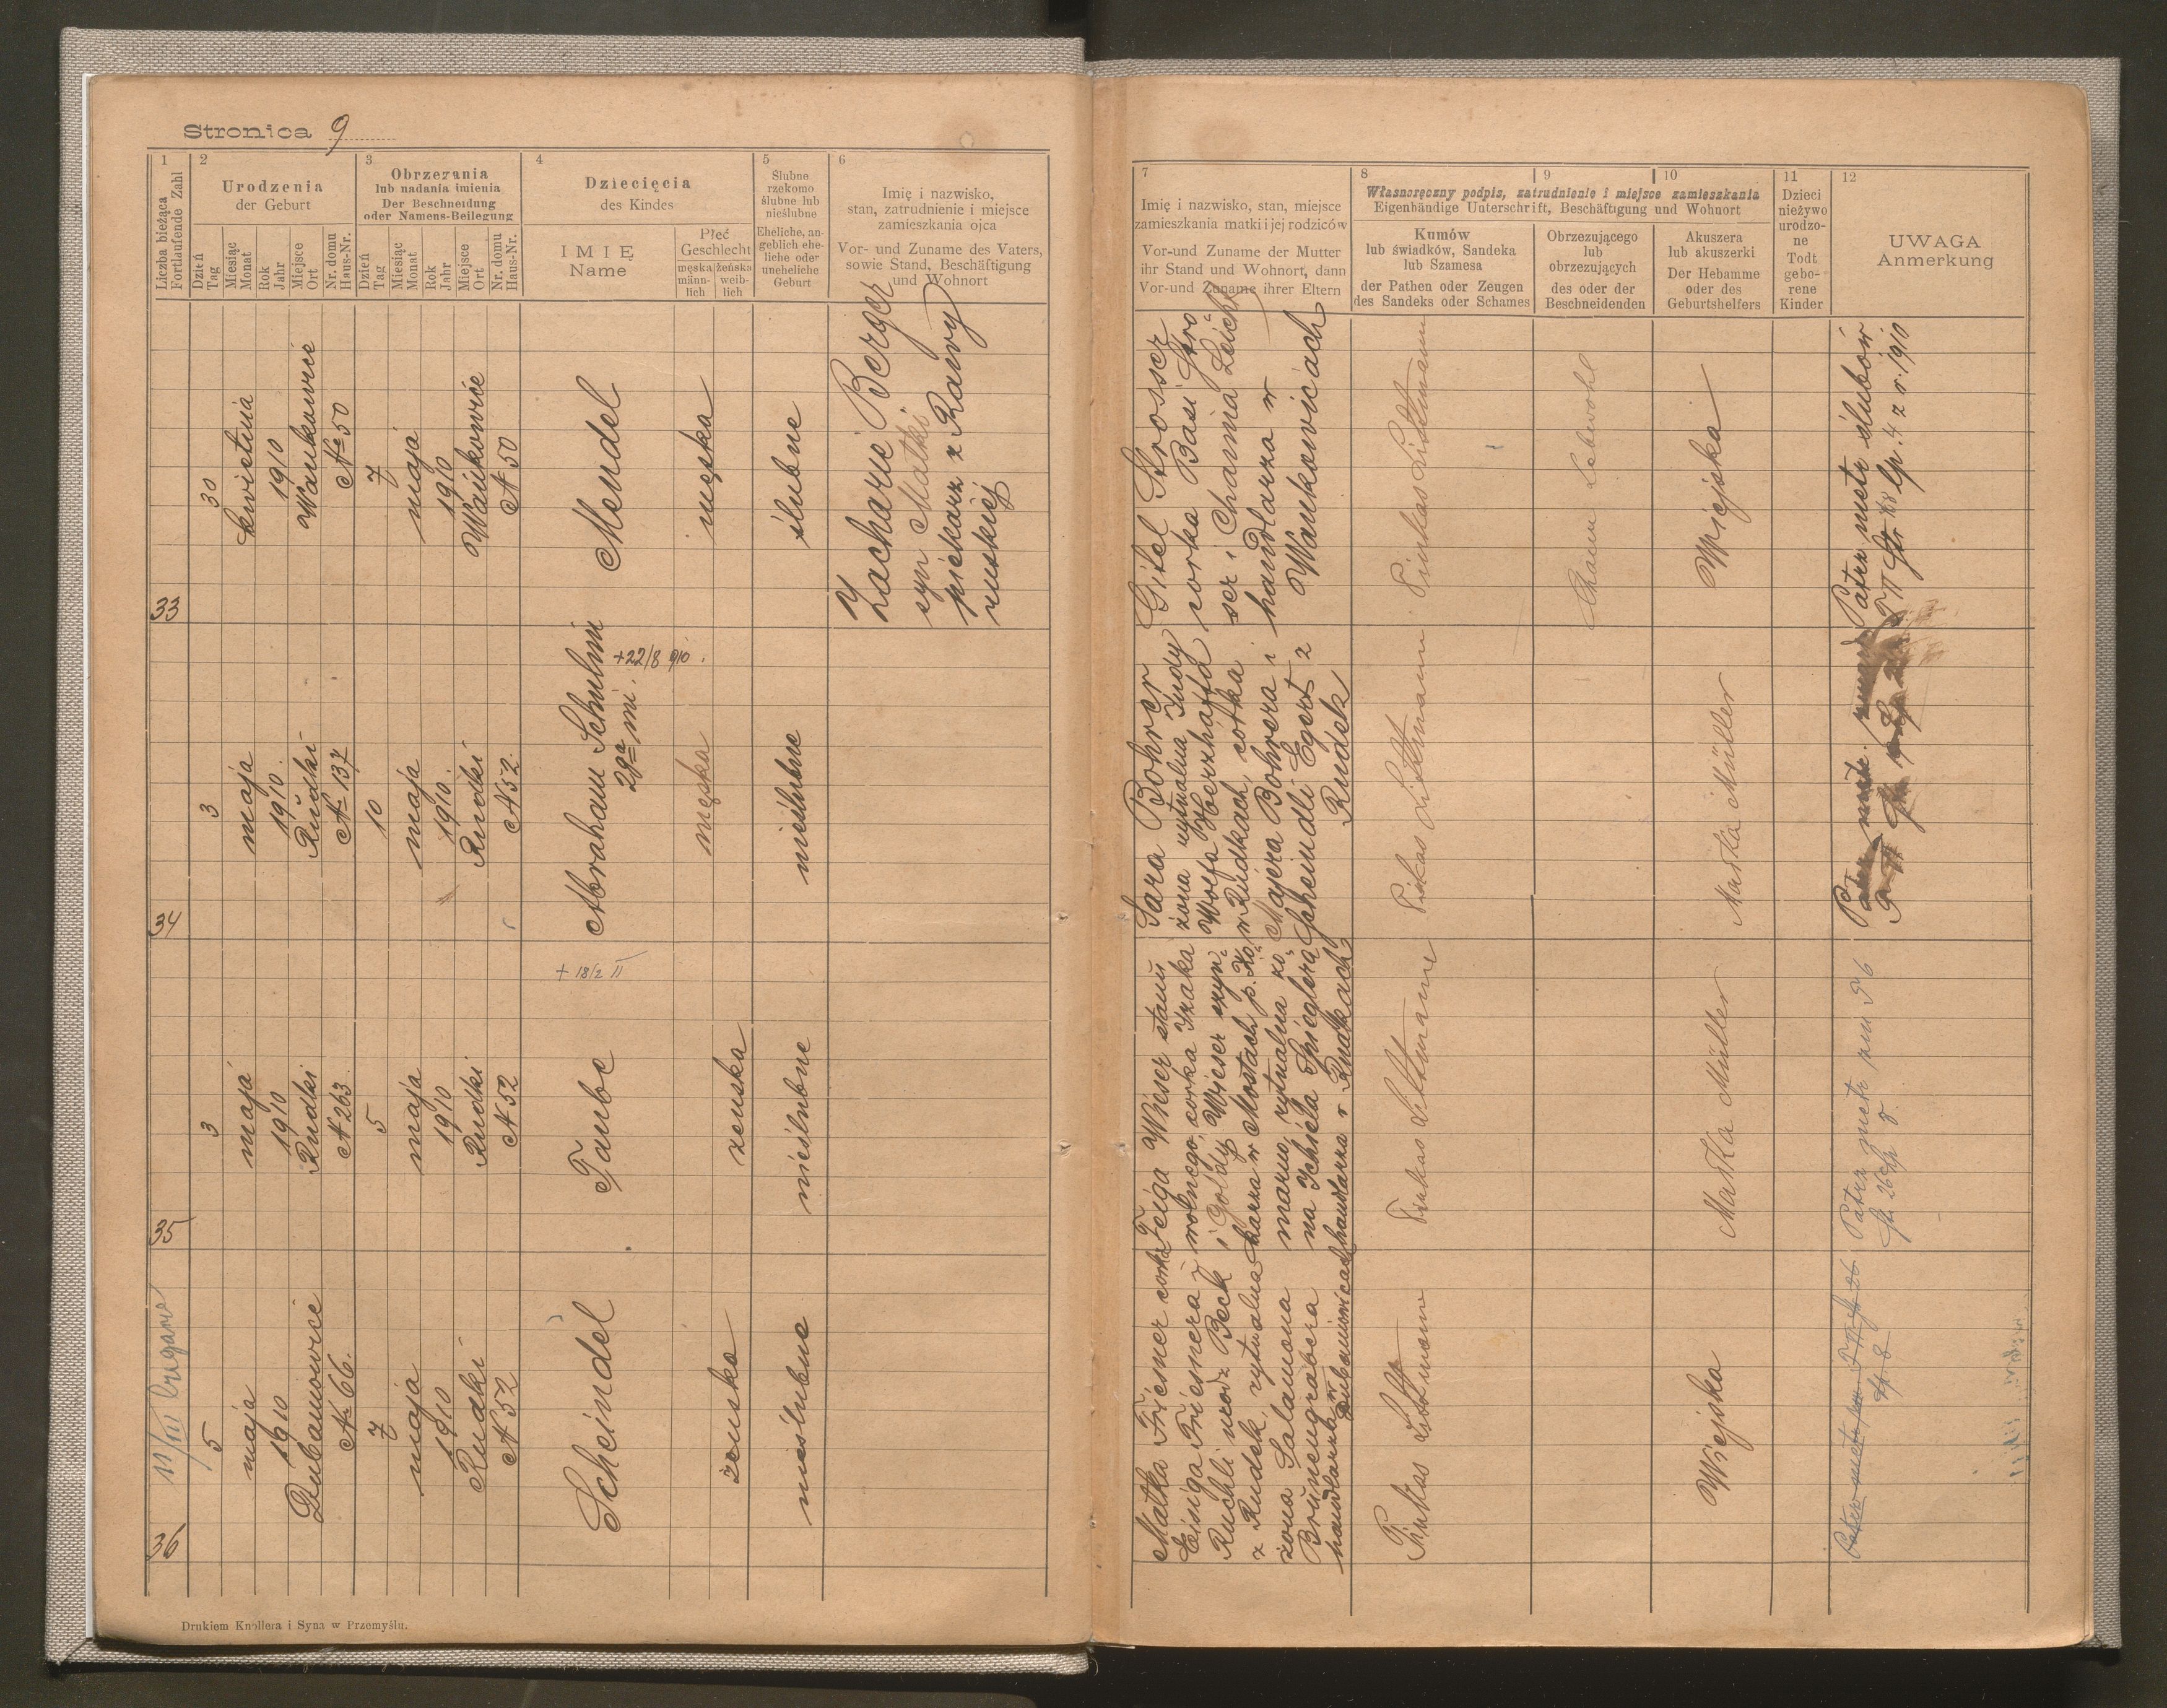 Stronica 9
1
Liczba bieżąca
Fortlaufende Zahl
2
Urodzenia
der Geburt
Dzień
Tag
Miesiąc
Monat
Rok
Jahr
Miejsce
Ort
Nr. domu
Haus-Nr.
3
Obrzezania
lub nadania imienia
Der Beschneidung
oder Namens-Beilegung
Dzień
Tag
Miesiąc
Monat
Rok
Jahr
Miejsce
Ort
Nr. domu
Haus-Nr.
4
Dziecięcia
des Kindes
IMIĘ
Name
Płeć
Geschlecht
męska
männ-
lich
żeńska
weib-
lich
5
Ślubne
rzekomo
ślubne lub
nieślubne
Eheliche, an-
geblich ehe-
liche oder
uneheliche
Geburt
6
Imię i nazwisko,
stan, zatrudnienie i miejsce
zamieszkania ojca
Vor- und Zuname des Vaters,
sowie Stand, Beschäftigung
und Wohnort
7
Imię i nazwisko, stan, miejsce
zamieszkania matki i jej rodziców
Vor-und Zuname der Mutter
ihr Stand und Wohnort, dann
Vor-und Zuname ihrer Eltern
8
9
10
Własnoręczny podpis, zatrudnienie i miejsce zamieszkania
Eigenhändige Unterschrift, Beschäftigung und Wohnort
Kumów
lub świadków, Sandeka
lub Szamesa
der Pathen oder Zeugen
des Sandeks oder Schames
Obrzezującego
lub
obrzezujących
des oder der
Beschneidenden
Akuszera
lub akuszerki
Der Hebamme
oder des
Geburtshelfers
11
Dzieci
nieżywo
urodzo-
ne
Todt
gebo-
rene
Kinder
12
UWAGA
Anmerkung
33
30
kwietnia
1910
Wankowice
№ 50
7
maja
1910
Wankowice
№ 50
Mendel
męska
ślubne
Zacharie Berger
syn Matki
piekarz z Rawy
ruskiej
Gitel Strosser
corka Basi Stro
ser i Chaima Leicht
handlarza w
Wankowicach
Pinkas Littmann
Chaim Lebwohl
Wiejska
Patrz metr ślubów
T II Str 88 lp. 4 z r. 1910
34
3
maja
1910.
Rudki
№ 137
10
maja
1910.
Rudki
№ 52
Abraham Schulim
2ga im.
+22/8 910.
męska
nieślubne
Sara Bohrer
żona rytualna Judy
Wolfa Herzhafta
w Rudkach, corka
Majera Bohrera i
Scheindli Egert z
Rudek
Pinkas Littmann
Markta Müller
35
3
maja
1910
Rudki
№ 263
5
maja
1910
Rudki
№ 52
+ 18/2 II
Taube
zenska
nieślubne
Feiga Wieser stanu
wolnego, corka Izaka
i Goldy Wieser szyn-
karza w Mostach p. Ko
marno, rytualna żo
na Ichiela Spieglera
handlarza w Rudkach
Pinkas Littmann
Markta Müller
36
5
maja
1910
Dubanowice
№ 66.
7
maja
1910
Rudki
№ 52
Scheindel
żenska
nieślubne
Matka Friesner corka
Eisiga Friesnera
Ruchli urodz Beck
z Rudek, rytualna
żona Salamona
Brünengrabera
handlarza w
Dubanowicach
Pinkas Littmann
Wiejska
Drukiem Knollera i Syna w Przemyślu.